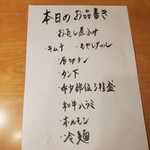 本日のお品書き
お通し三点盛り
・キムチ ・もやしナムル
・厚切タン
・タン下
・希少部位3種盛
・和牛ハラミ
・ホルモン
・冷麺